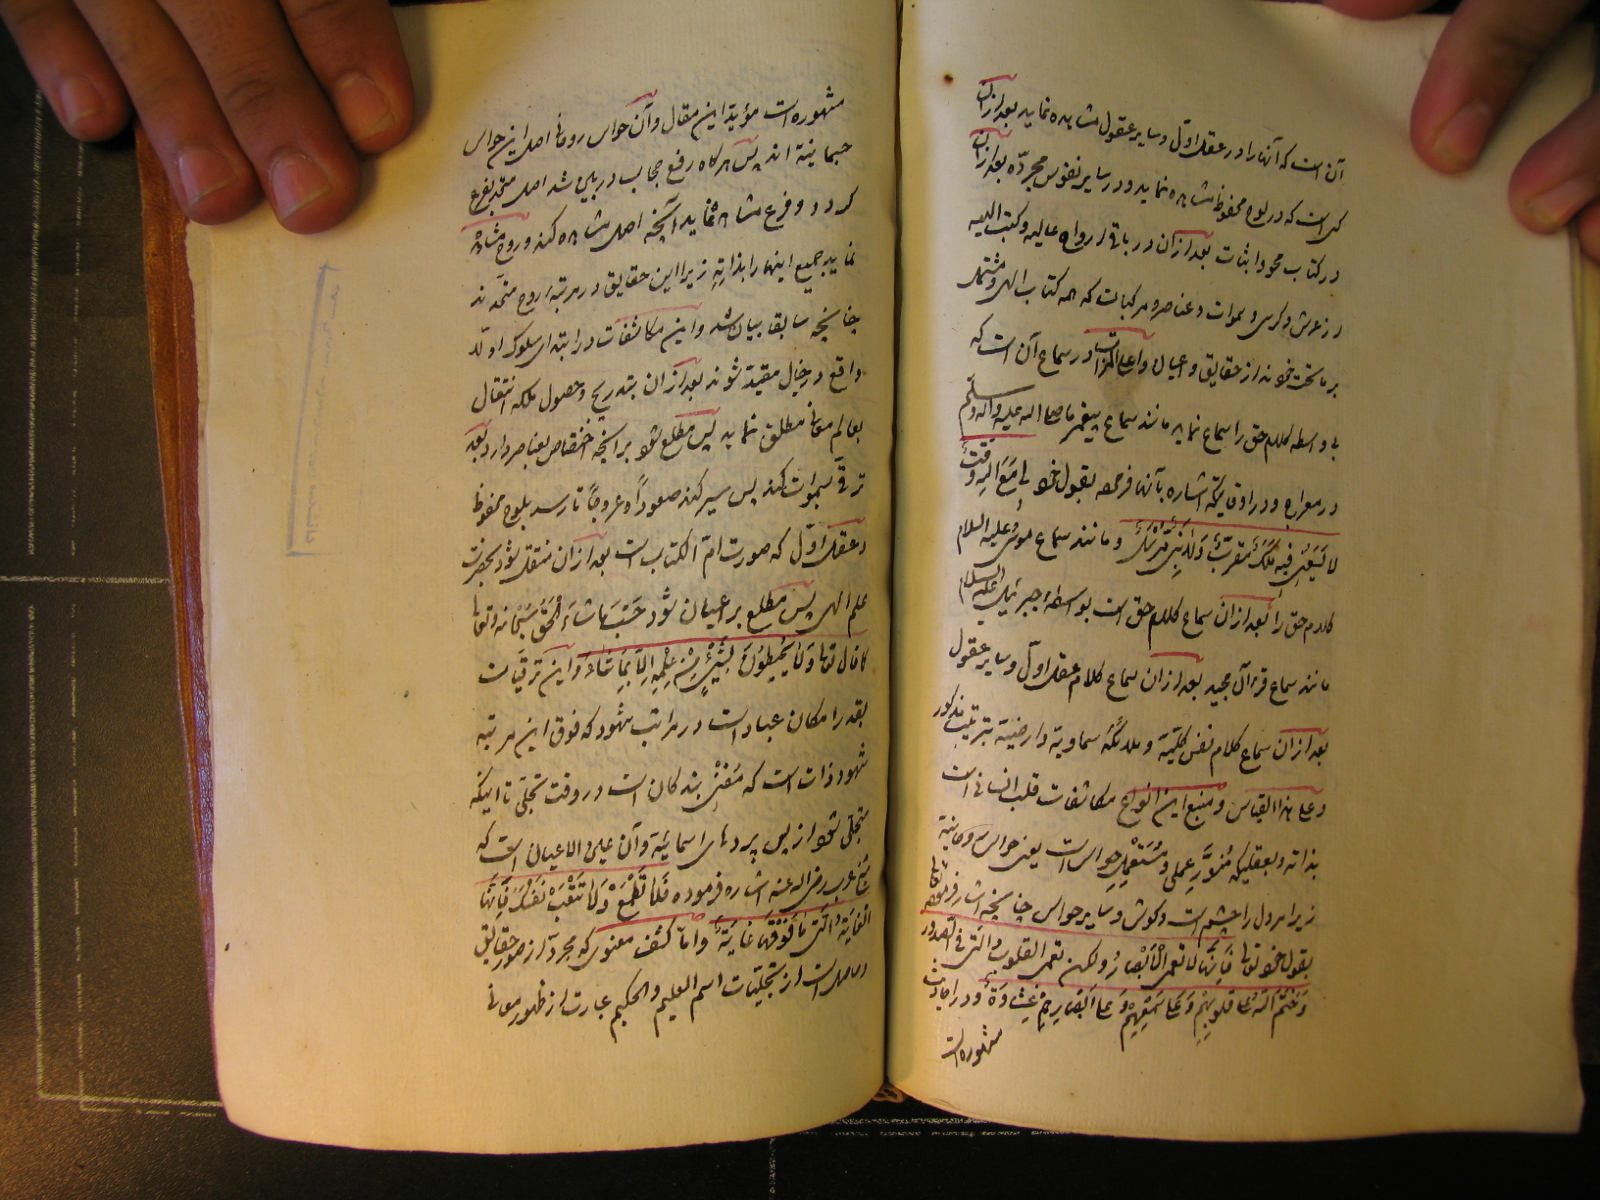 آن است که آنها را در عقل اوّل و سایر عقول مشاهده نماید بعد از آن
که در لوح محفوظ مشاهده نماید و در سایر نفوس مجرّده بعد از آن
در کتاب محو و اثبات بعد از آن در باقی ارواح عالیه و کتب الهیه
از عرش و کرسی و سموات و عناصر و مرکبات که همه کتاب الهی و مشتمل
بر ما تحت خود اند از حقایق و اعیان و اعلی المراتب در سماع آن است که
بی واسطه کلام حق را سماع نماید مانند سماع پیغمبر ما صلی الله علیه و آله و سلّم
در معراج و در اوقاتیکه اشاره بآنها فرموده بقول خود لی مَعَ الله وَقتٌ
لا یَسَعُنی فیه مَلَکٌ مقرّبٌ وَلا نَبِیٌّ مُرسَلٌ و مانند سماع موسی علیه السلام
کلام حق را بعد از آن سماع کلام حق است بواسطهٔ جبرئیل علیه السلام
مانند سماع قرءآن مجید بعد از آن سماع کلام عقل اوّل و سایر عقول
بعد از آن سماع کلام نفس کلّیّه و ملائکهٔ سماویّه و ارضیّه بترتیب مذکور
و علی هذا القیاس و منبع این انواع مکاشفات قلب انسانی است
بذاته و بعقلیکه مُنوّرِ عملی و مُستَعمِلِ حواس است یعنی حواس روحانیّة
زیرا مر دل را چشم است و گوش و سایر حواس چنانچه اشاره فرموده
بقول خود تعالی فَاِنَّها لا تعمی الاَبْصارُ ولکن تعمی القلوب التی فی الصدور
وَ خَتَمَ الله عَلی قلوبِهِم وَ عَلی سَمْعِهِمْ وَ عَلی اَبْصارِهِمْ غِشاوَةٌ و در احادیث
مشهوره است
مشهوره است مؤیّد این مقال و آن حواس روحانی اصل این حواس
جسمانیّة اند پس هرگاه رفع حجاب در بین شد اصل متّحد بفرع
گردد و فرع مشاهده نماید آنچه اصل مشاهده کند و روح مشاهده
نماید جمیع اینها را بذاتِهِ زیرا این حقایق در مرتبهٔ روح متّحدند
چنانچه سابقا بیان شد و این مکاشفات در ابتدای سلوک اولاً
واقع در خیال مقیّد شوند بعد از آن بتدریج و حصول ملکه انتقال
بعالم مثالی مطلق نماید پس مطلع شود بر آنچه اختصاص بعناصر دارد بعد
ترقّی بسموات کند پس سیر کند صعوداً و عروجاً تا رسد بلوح محفوظ
و عقل اوّل که صورت امّ الکتاب است بعد از آن منتقل شود بحضرت
علم الهی پس مطلع بر اعیان شود حَسْبَ ما شاءَ الحَقُّ سُبْحانه وتعالی
کما قال تعالی وَلا یُحیطُونَ بِشَیْءٍ مِنْ عِلْمِهِ اِلاّ بِما شاءَ و این ترقیّات
بقدر امکان عباد است در مراتب شهود که فوق این مرتبه
شهود ذات است که مُفْنی بندگان است در وقت تجلّی تا اینکه
متجلّی شود از پس پردهای اسمائیّه و آن عین الاعیان است که
شیخ عرب رضی الله عنه اشاره فرموده فَلا تَطْمَعْ وَلا تَتْعَبْ نَفْسَکَ فَاِنَّها
الغایَةُ الَّتی ما فَوْقَها غایَةٌ و امّا کشف معنوی که مجرّد از صور حقایق
و حاصل است از تجلّیّات اسم العلیم و الحکیم عبارت از ظهور معانی